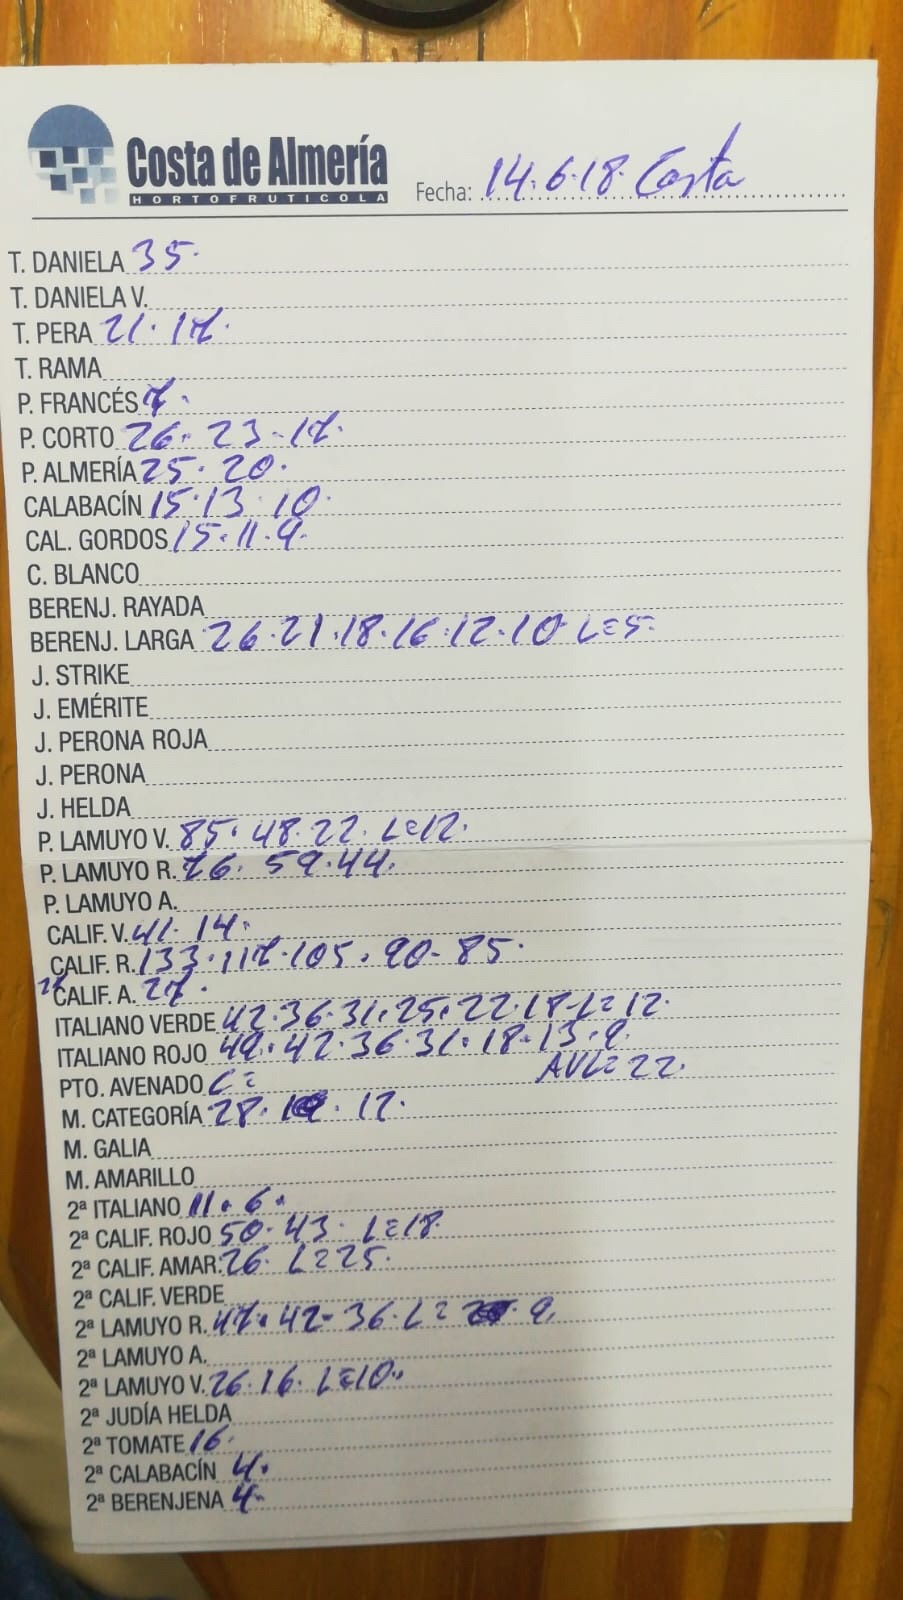 Costa de Almería
HORTOFRUTICOLA
Fecha: 14.6.18. Costa
T. DANIELA 35.
T. DANIELA V.
T. PERA 21. 17.
T. RAMA
P. FRANCÉS 7.
P. CORTO 26. 23. 17.
P. ALMERÍA 25. 20.
CALABACÍN 15.13.10.
CAL. GORDOS 15.11.9.
C. BLANCO
BERENJ. RAYADA
BERENJ. LARGA 26.21.18.16.12.10 L=5.
J. STRIKE
J. EMÉRITE
J. PERONA ROJA
J. PERONA
J. HELDA
P. LAMUYO V. 85. 48.22. L=12.
P. LAMUYO R. 76. 59.44.
P. LAMUYO A.
CALIF. V. 41. 14.
CALIF. R. 133.117.105.90.85.
CALIF. A. 27.
ITALIANO VERDE 42.36.31.25.22.18-L=12.
ITALIANO ROJO 49.42.36.31.18.13.9.
PTO. AVENADO C= AVL=22.
M. CATEGORÍA 28. 12.
M. GALIA
M. AMARILLO
2ª ITALIANO 11. 6.
2ª CALIF. ROJO 50. 43. L=18.
2ª CALIF. AMAR. 26. L=25.
2ª CALIF. VERDE
2ª LAMUYO R. 47.42.36.L= 9.
2ª LAMUYO A.
2ª LAMUYO V. 26.16. L=10.
2ª JUDÍA HELDA
2ª TOMATE 16.
2ª CALABACÍN 4.
2ª BERENJENA 4.